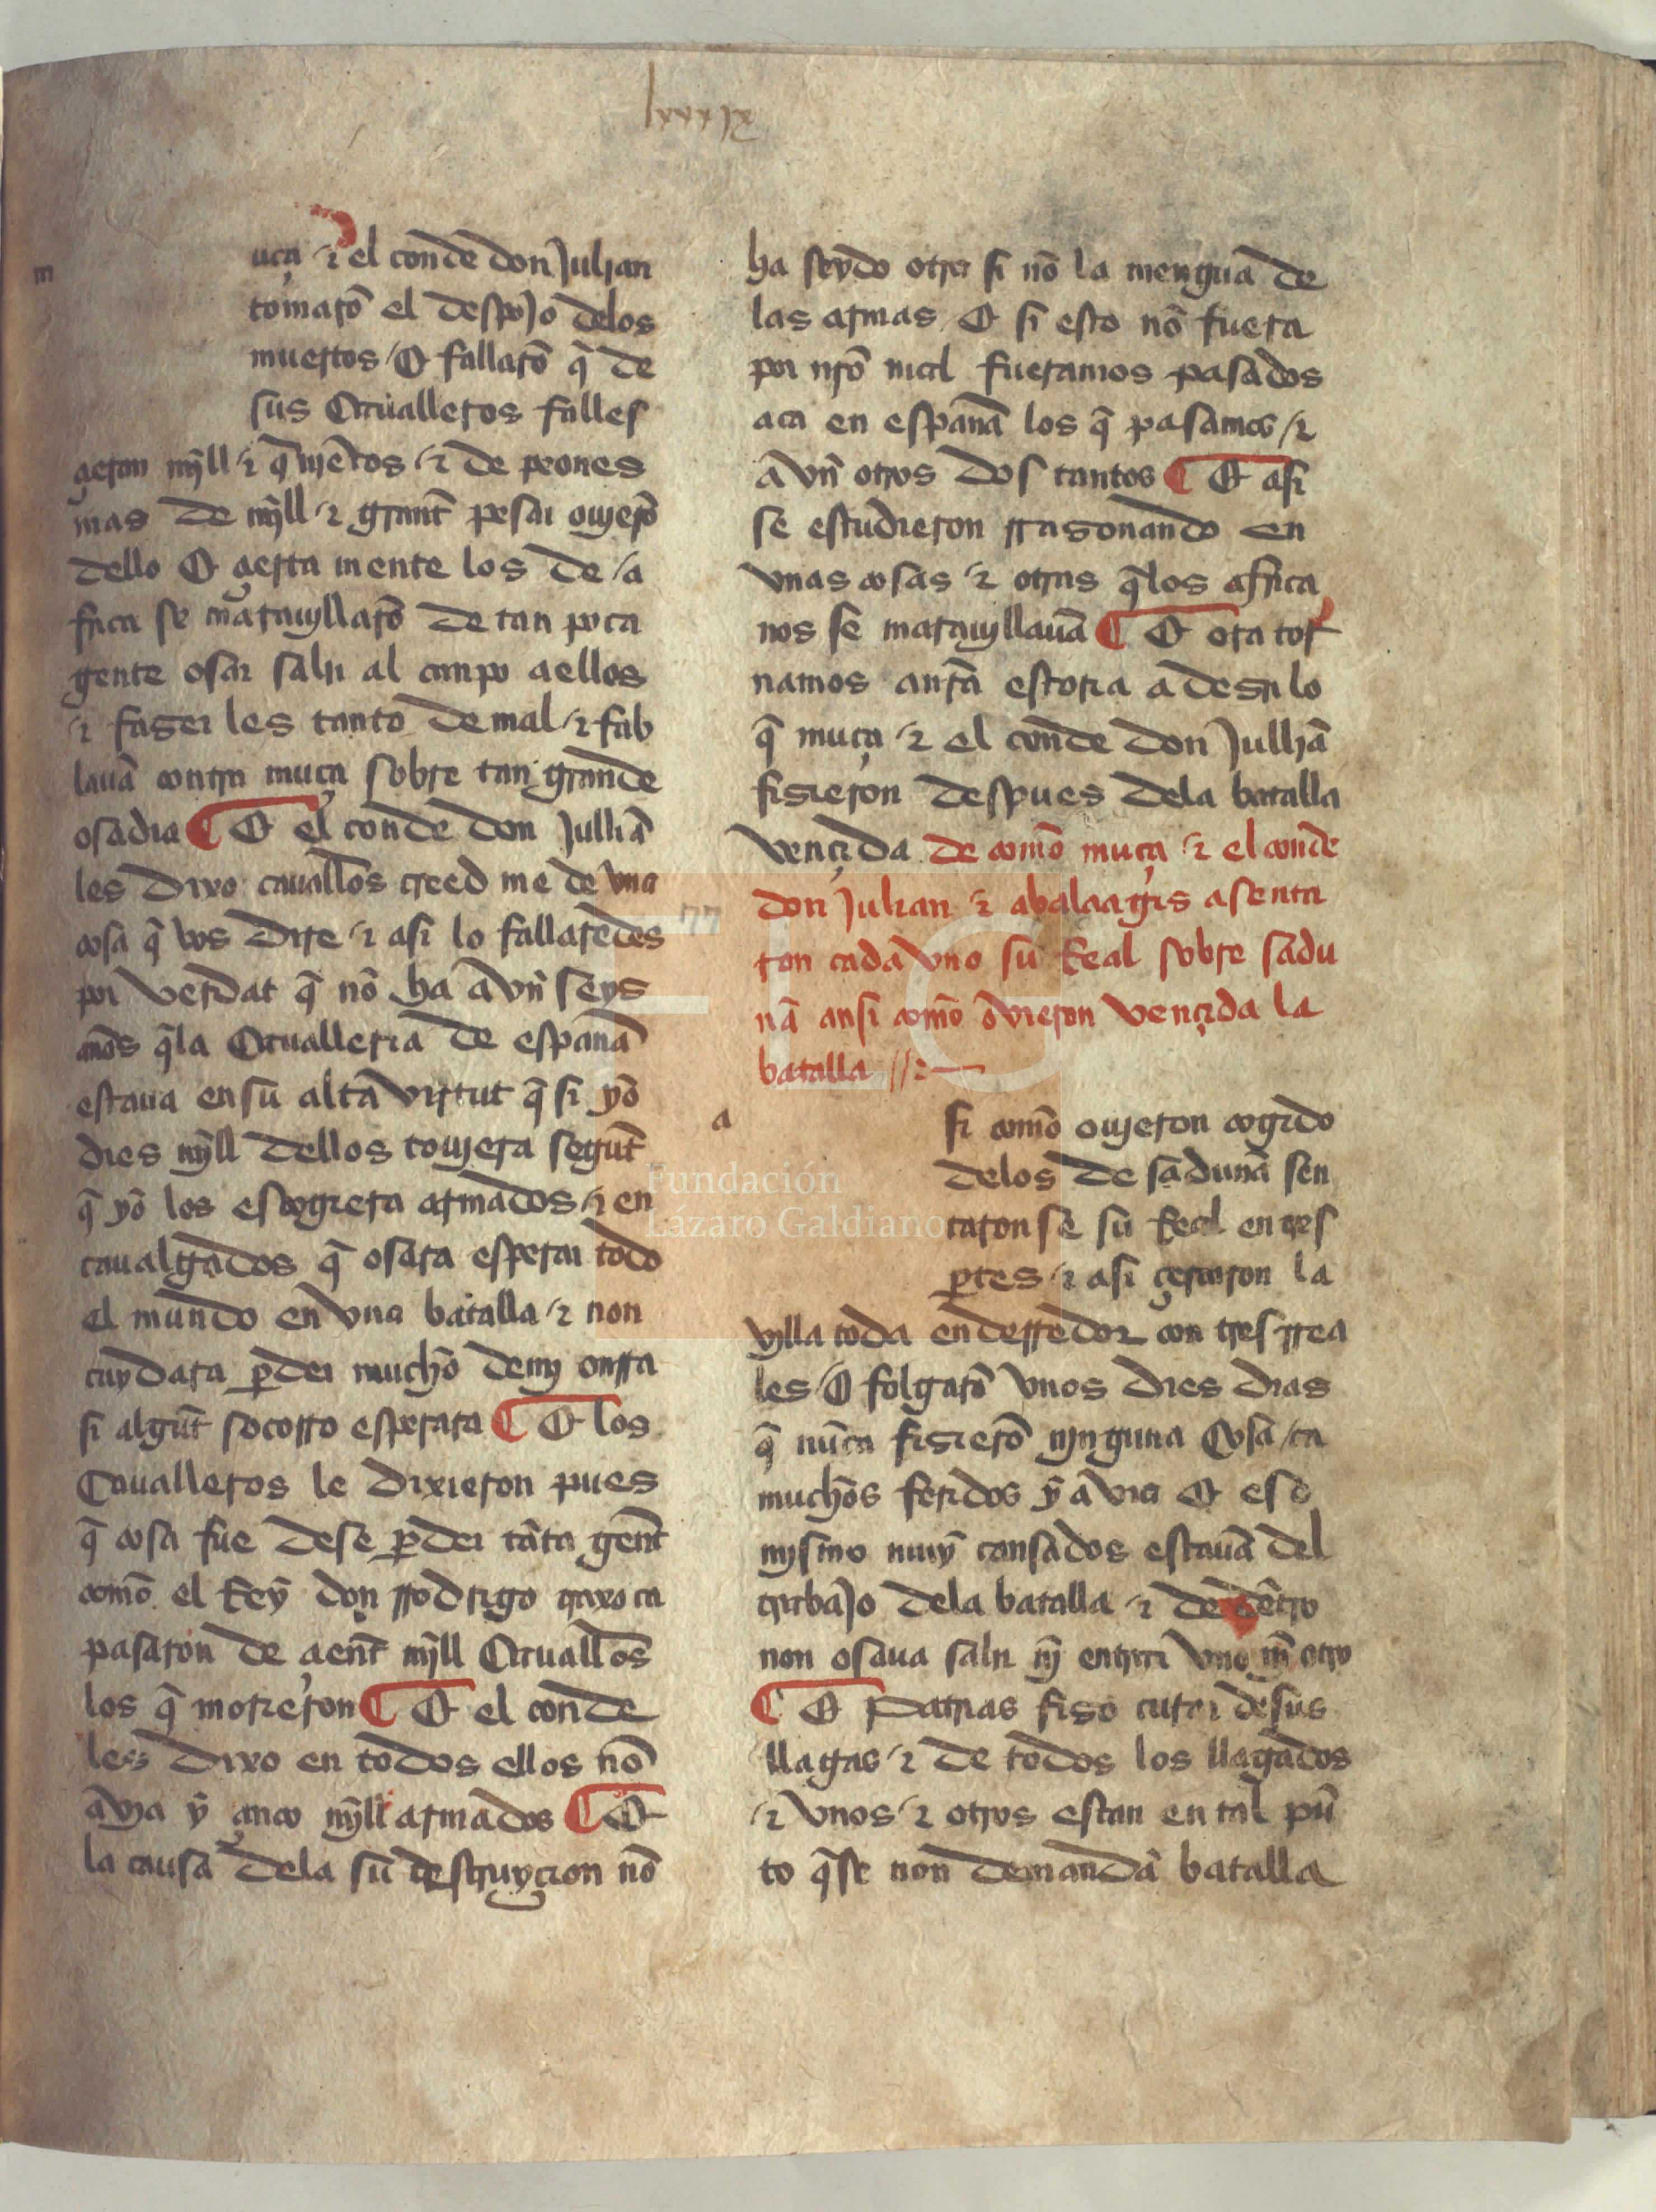 lxxxix
m
uça ⁊ el conde don Julian
tomarõ el despojo delos
muertos / E fallarõ q̃ de
sus Caualleros falles
çieron mjll ⁊ qͥnjẽtos ⁊ de peones
mas de mjll ⁊ grant pesar oujerõ
dello E çierta mente los de / a
frica se marauyllarõ de tan poca
gente osar salir al canpo a ellos
⁊ faser les tanto de mal ⁊ fab
lauã contra muça sobre tan grande
osadia ¶ E el conde don Julliã
les dixo caualleros creed me de vna
cosa q̃ vos dire ⁊ asi lo fallaredes
por verdat q̃ nõ ha avn̄ seys
años q̃la Caualleria de españa
estaua en su alta virtut q̃ si yo
dies mjll dellos toujera segut̃
q̃ yo los escogiera armados ⁊ en
caualgados q̃ osara esperar todo
el mundo en vna batalla ⁊ non
cuydara ꝑder mucho de mj onrra
si algut̃ socorro esperara ¶ E los
Caualleros le dixieron pues
q̃ cosa fue dese ꝑder tãta gent̃
como el Rey don rrodrigo traxo ca
pasaron de çient̃ mjll Caualłos
los q̃ morieron ¶ E el conde
les dixo en todos ellos nõ
avia y çinco mjll armados ¶ E
la causa dela su destruyçion nõ
ha seydo otra si nõ la mengua de
las armas E si esto nõ fuera
por nrõ mal fueramos pasados
aca en españa los q̃ pasamos / ⁊
avn̄ otros dos tantos ¶ E asi
se estudieron rrasonando en
vnas cosas ⁊ otras q̃los africa
nos se marauyllauã ¶ E ora tor
namos anrã estoria a desir lo
q̃ muça ⁊ el conde don Julliã
fisieron despues dela batalla
vençida de como muça ⁊ el conde
don Julian ⁊ abalaagis asenta
ron cada vno su Real sobre sadu
nã ansi como ovieron vençida la
batalla //:—
a
si como oujeron cogido
delos de saduña sen
taron se su Real en tres
ꝑtes ⁊ asi çercaron la
vjlla toda en derredor con tres rrea
les / E folgarõ vnos dies dias
q̃ nũca fisierõ njnguna Cosa / ca
muchos feridos y avia E eso
mjsmo muy cansados estauã del
trabajo dela batalla ⁊ de dẽtro
non osaua salir nj̃ entrar vno nj̃ otro
¶ E patrias fiso curar de sus
llagas ⁊ de todos los llagados
⁊ vnos ⁊ otros estan en tal pũ
to q̃se non demandã batalla
Fundación
Lázaro Galdiano